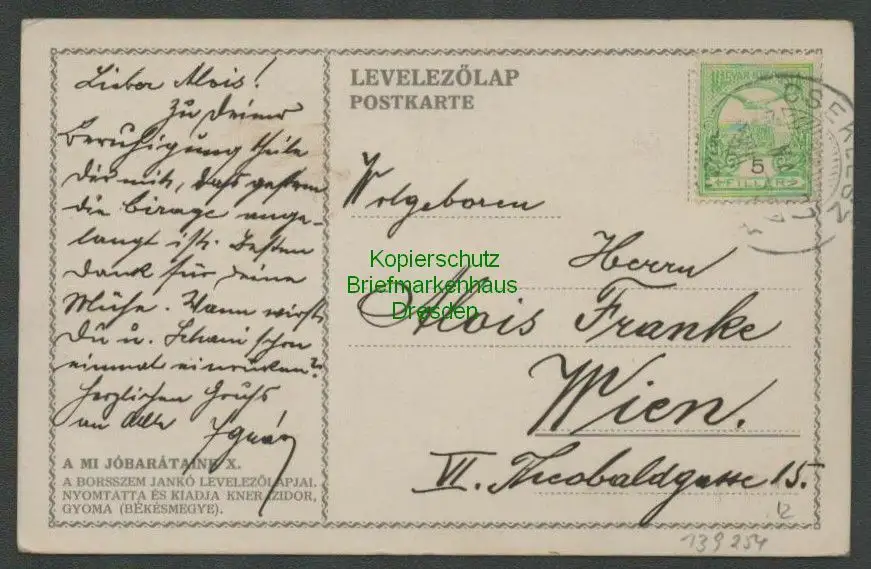 Lieber Alois!
Zu deiner
Beruhigung theile
dir mit, dass gestern
die Birage ange-
langt ist. Besten
Dank für deine
Mühe. Wann wirst
Du u. Schani schon
einmal einrücken?
Herzlichen Gruss
an Alle Ignáz
A MI JÓBARÁTAINK X.
A BORSSZEM JANKÓ LEVELEZŐLAPJAI.
NYOMTATTA ÉS KIADJA KNER IZIDOR,
GYOMA (BÉKÉSMEGYE).
LEVELEZŐLAP
POSTKARTE
MAGYAR
5
FILLÉR
CSEKLESZ
Wolgeboren
Herrn
Alois Franke
Wien.
VI. Theobaldgasse 15.
Kopierschutz
Briefmarkenhaus
Dresden
12
139254